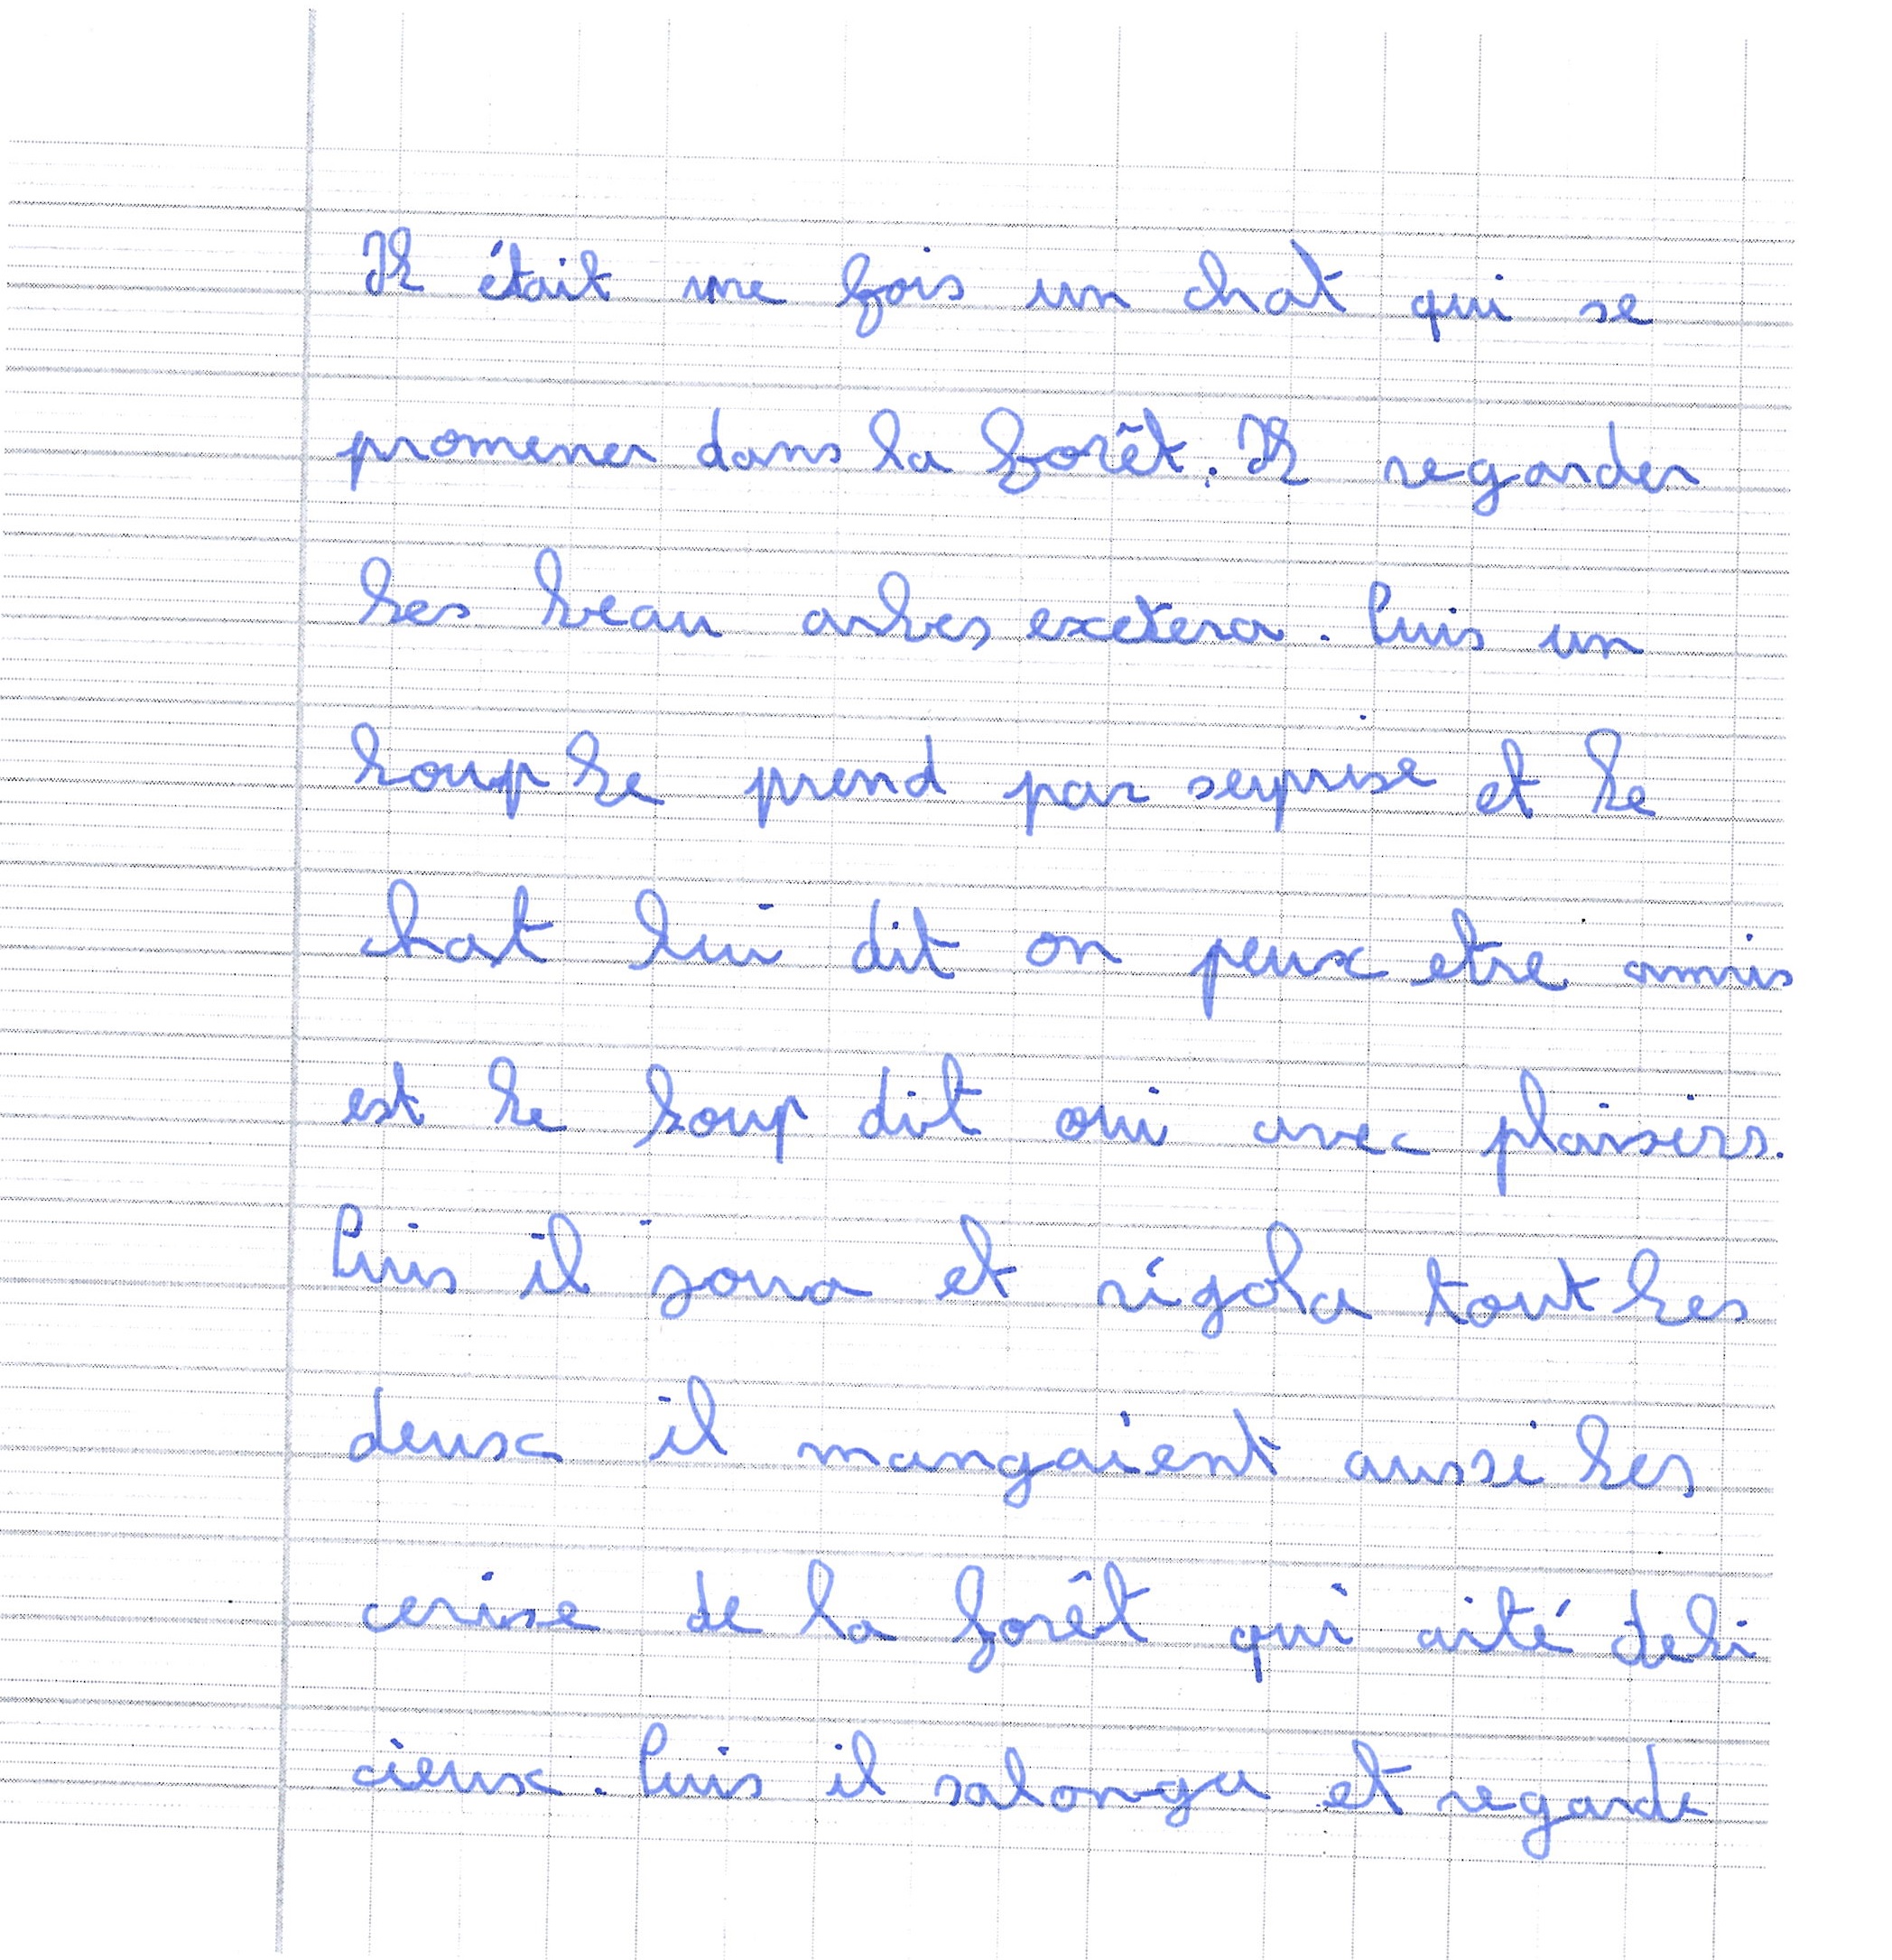 Il était une fois un chat qui se
promener dans la forêt. Il regarder
les beau arbes exetera. Puis un
loup le prend par seuprise et le
chat lui dit on peux etre amis
est le loup dit oui avec plaisirs.
Puis il joua et rigola tout les
deux il mangaient aussi les
cerise de la forêt qui aité deli
cieux. Puis il salonga et regarde